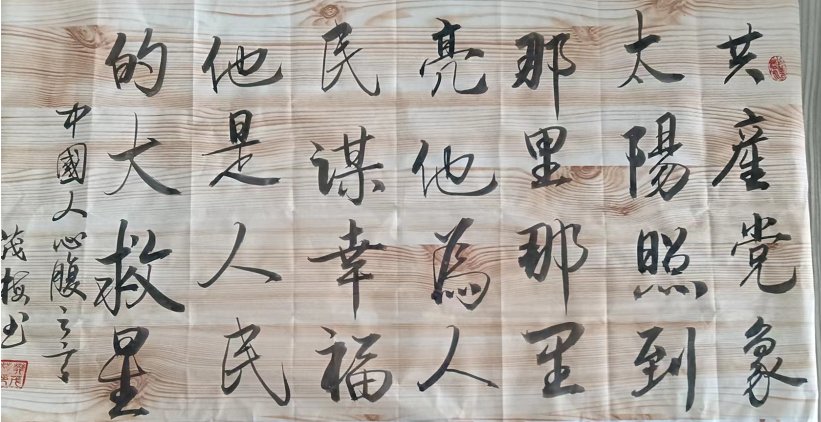 共產党象
太陽照到
那里那里
亮他為人
民谋幸福
他是人民
的大救星
中國人心腹之言
茂梅书